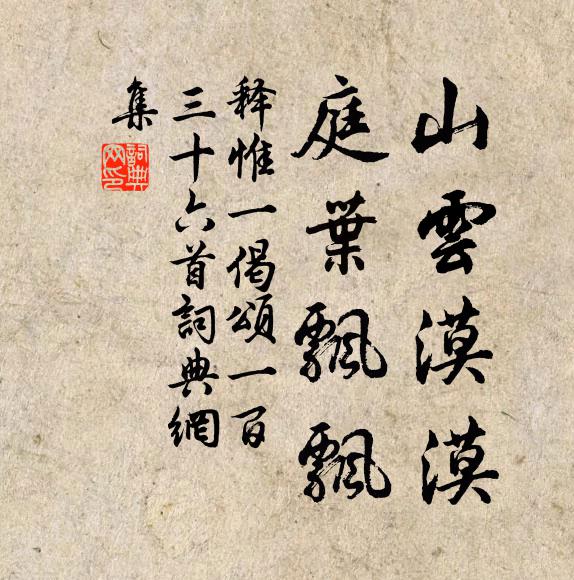 山雲漠漠
庭葉飄飄
释惟一偈頌一百
三十六首詞典網
集
詞典網印